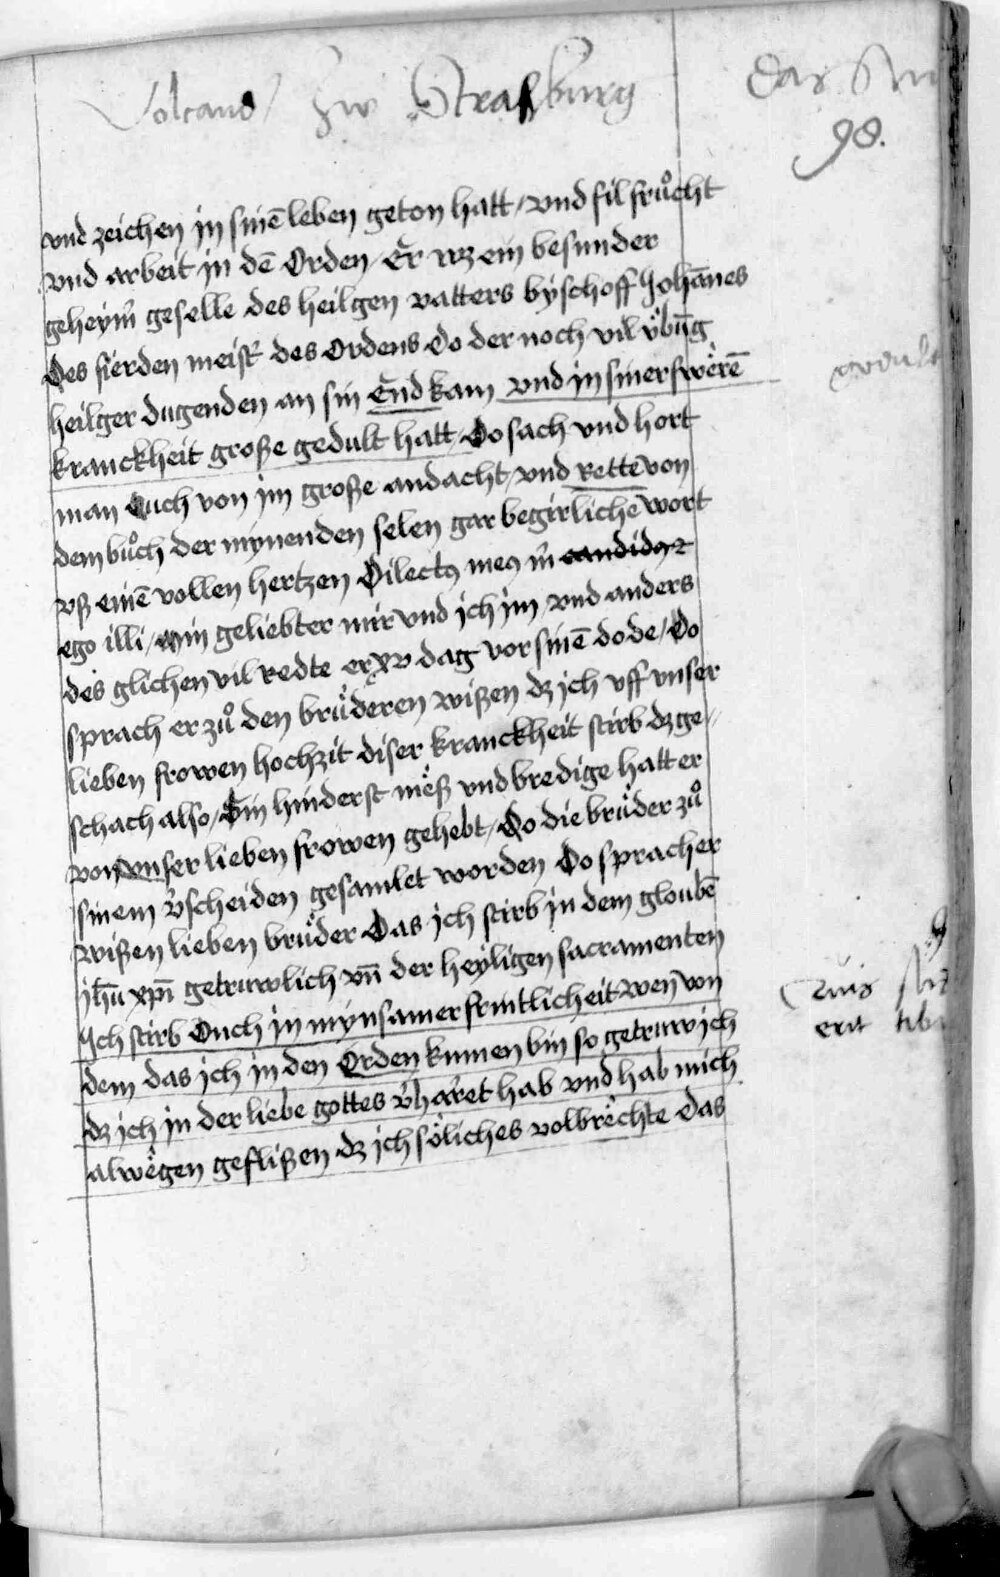 Volcand / zw Straßburg
Das
98.
vnd zeichen in sinē leben geton hatt / vnd fil fruͦcht
vnd arbeit in dē Orden / Er wz ein besunder
geheym̄ geselle des heilgen vatters byschoff Johānes
des fierden meist̄ des Ordens Do der noch vil v̈būg
heilger dugenden an sin End kam vnd in siner swerē
kranckheit große gedult hatt / Do sach vnd hort
man Ouch von im große andacht / vnd rette von
dem buͦch der mynenden selen gar begirlichē wort
vß einē vollen hertzen Dilectꝰ meꝰ m̄ candidus
ego illi / myn geliebter mir vnd ich im / vnd anders
des glichen vil redte er xv dag vor sinē dode / Do
sprach er zuͦ den bruͤderen wißen dz ich vff vnser
lieben frowen hochzit diser kranckheit stirb dz ge-
schach also / Sin hinderst mëß vnd bredige hatt er
von vnser lieben frowen gehebt / Do die bruͤder zuͦ
sinem v̄scheiden gesamlet worden Do sprach er
wißen lieben bruͤder Das ich stirb in dem gloubē
jhū xp̄i getruwlich vn̄ der heyligen sacramenten
Ich stirb Ouch in mynsamer fruntlicheit wen von
dem das ich in den Orden kumen bin so getruw ich
dz ich in der liebe gottes v̄harret hab vnd hab mich
alwëgen geflißen dz ich sȯliches volbrëchte Das
erit tibi